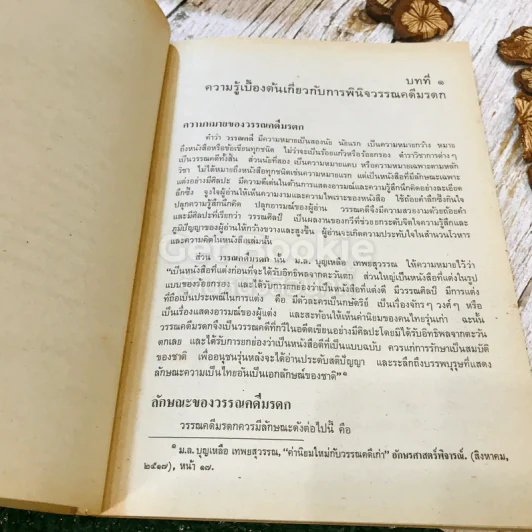 บทที่ ๑
ความรู้เบื้องต้นเกี่ยวกับการพินิจวรรณคดีมรดก
ความหมายของวรรณคดีมรดก
คำว่า วรรณคดี มีความหมายเป็นสองนัย นัยแรก เป็นความหมายกว้าง หมาย
ถึงหนังสือหรือข้อเขียนทุกชนิด ไม่ว่าจะเป็นร้อยแก้วหรือร้อยกรอง ตำราวิชาการต่างๆ
เป็นวรรณคดีทั้งสิ้น ส่วนนัยที่สอง เป็นความหมายแคบ หรือความหมายเฉพาะตามหลัก
วิชา ไม่ได้หมายถึงหนังสือทุกชนิดเช่นความหมายแรก แต่เป็นหนังสือที่มีลักษณะเฉพาะ
แต่งอย่างมีศิลปะ มีความดีเด่นในด้านการแสดงอารมณ์และความรู้สึกนึกคิดอย่างละเอียด
ลึกซึ้ง จูงใจผู้อ่านให้เห็นความงามและความไพเราะของหนังสือ ใช้ถ้อยคำลึกซึ้งกินใจ
ปลุกความรู้สึกนึกคิด ปลุกอารมณ์ของผู้อ่าน วรรณคดีจึงมีความสวยงามด้วยถ้อยคำ
และมีศิลปะที่เรียกว่า วรรณศิลป์ เป็นผลงานของกวีที่ช่วยยกระดับจิตใจความรู้สึกและ
ภูมิปัญญาของผู้อ่านให้กว้างขวางและสูงขึ้น ผู้อ่านจะเกิดความประทับใจในสำนวนโวหาร
และความคิดในหนังสือเล่มนั้น
ส่วน วรรณคดีมรดก นั้น ม.ล. บุญเหลือ เทพยสุวรรณ ให้ความหมายไว้ว่า
“เป็นหนังสือที่แต่งก่อนที่จะได้รับอิทธิพลจากตะวันตก ส่วนใหญ่เป็นหนังสือที่แต่งในรูป
แบบของร้อยกรอง และได้รับการยกย่องว่าเป็นหนังสือที่แต่งดี มีวรรณศิลป์ มีการแต่ง
ที่ถือเป็นประเพณีในการแต่ง คือ มีตัวละครเป็นกษัตริย์ เป็นเรื่องจักรๆ วงศ์ๆ หรือ
เป็นเรื่องแสดงอารมณ์ของผู้แต่ง และสะท้อนให้เห็นค่านิยมของคนไทยรุ่นเก่า ฉะนั้น
วรรณคดีมรดกจึงเป็นวรรณคดีที่กวีในอดีตเขียนอย่างมีศิลปะโดยมิได้รับอิทธิพลจากตะวัน
ตกเลย และได้รับการยกย่องว่าเป็นหนังสือดีที่เป็นแบบฉบับ ควรแก่การรักษาเป็นสมบัติ
ของชาติ เพื่ออนุชนรุ่นหลังจะได้อ่านประดับสติปัญญา และระลึกถึงบรรพบุรุษที่แสดง
ลักษณะความเป็นไทยอันเป็นเอกลักษณ์ของชาติ”๑
ลักษณะของวรรณคดีมรดก
วรรณคดีมรดกควรมีลักษณะดังต่อไปนี้ คือ
๑ ม.ล. บุญเหลือ เทพยสุวรรณ, “ค่านิยมใหม่กับวรรณคดีเก่า” อักษรศาสตร์พิจารณ์. (สิงหาคม,
๒๕๑๗), หน้า ๑๗.